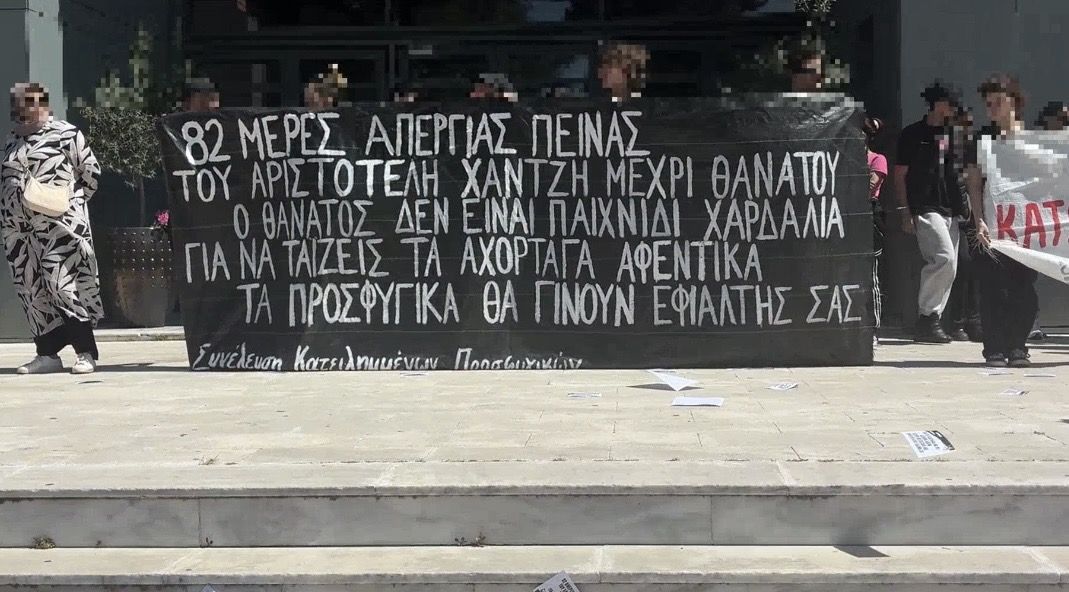 82 ΜΕΡΕΣ ΑΠΕΡΓΙΑΣ ΠΕΙΝΑΣ
ΤΟΥ ΑΡΙΣΤΟΤΕΛΗ ΧΑΝΤΖΗ ΜΕΧΡΙ ΘΑΝΑΤΟΥ
Ο ΘΑΝΑΤΟΣ ΔΕΝ ΕΙΝΑΙ ΠΑΙΧΝΙΔΙ ΧΑΡΔΑΛΙΑ
ΓΙΑ ΝΑ ΤΑΙΖΕΙΣ ΤΑ ΑΧΟΡΤΑΓΑ ΑΦΕΝΤΙΚΑ
ΤΑ ΠΡΟΣΦΥΓΙΚΑ ΘΑ ΓΙΝΟΥΝ ΕΦΙΑΛΤΗΣ ΣΑΣ
Συνέλευση Κατειλημμένων Προσφυγικών
ΚΑΤ